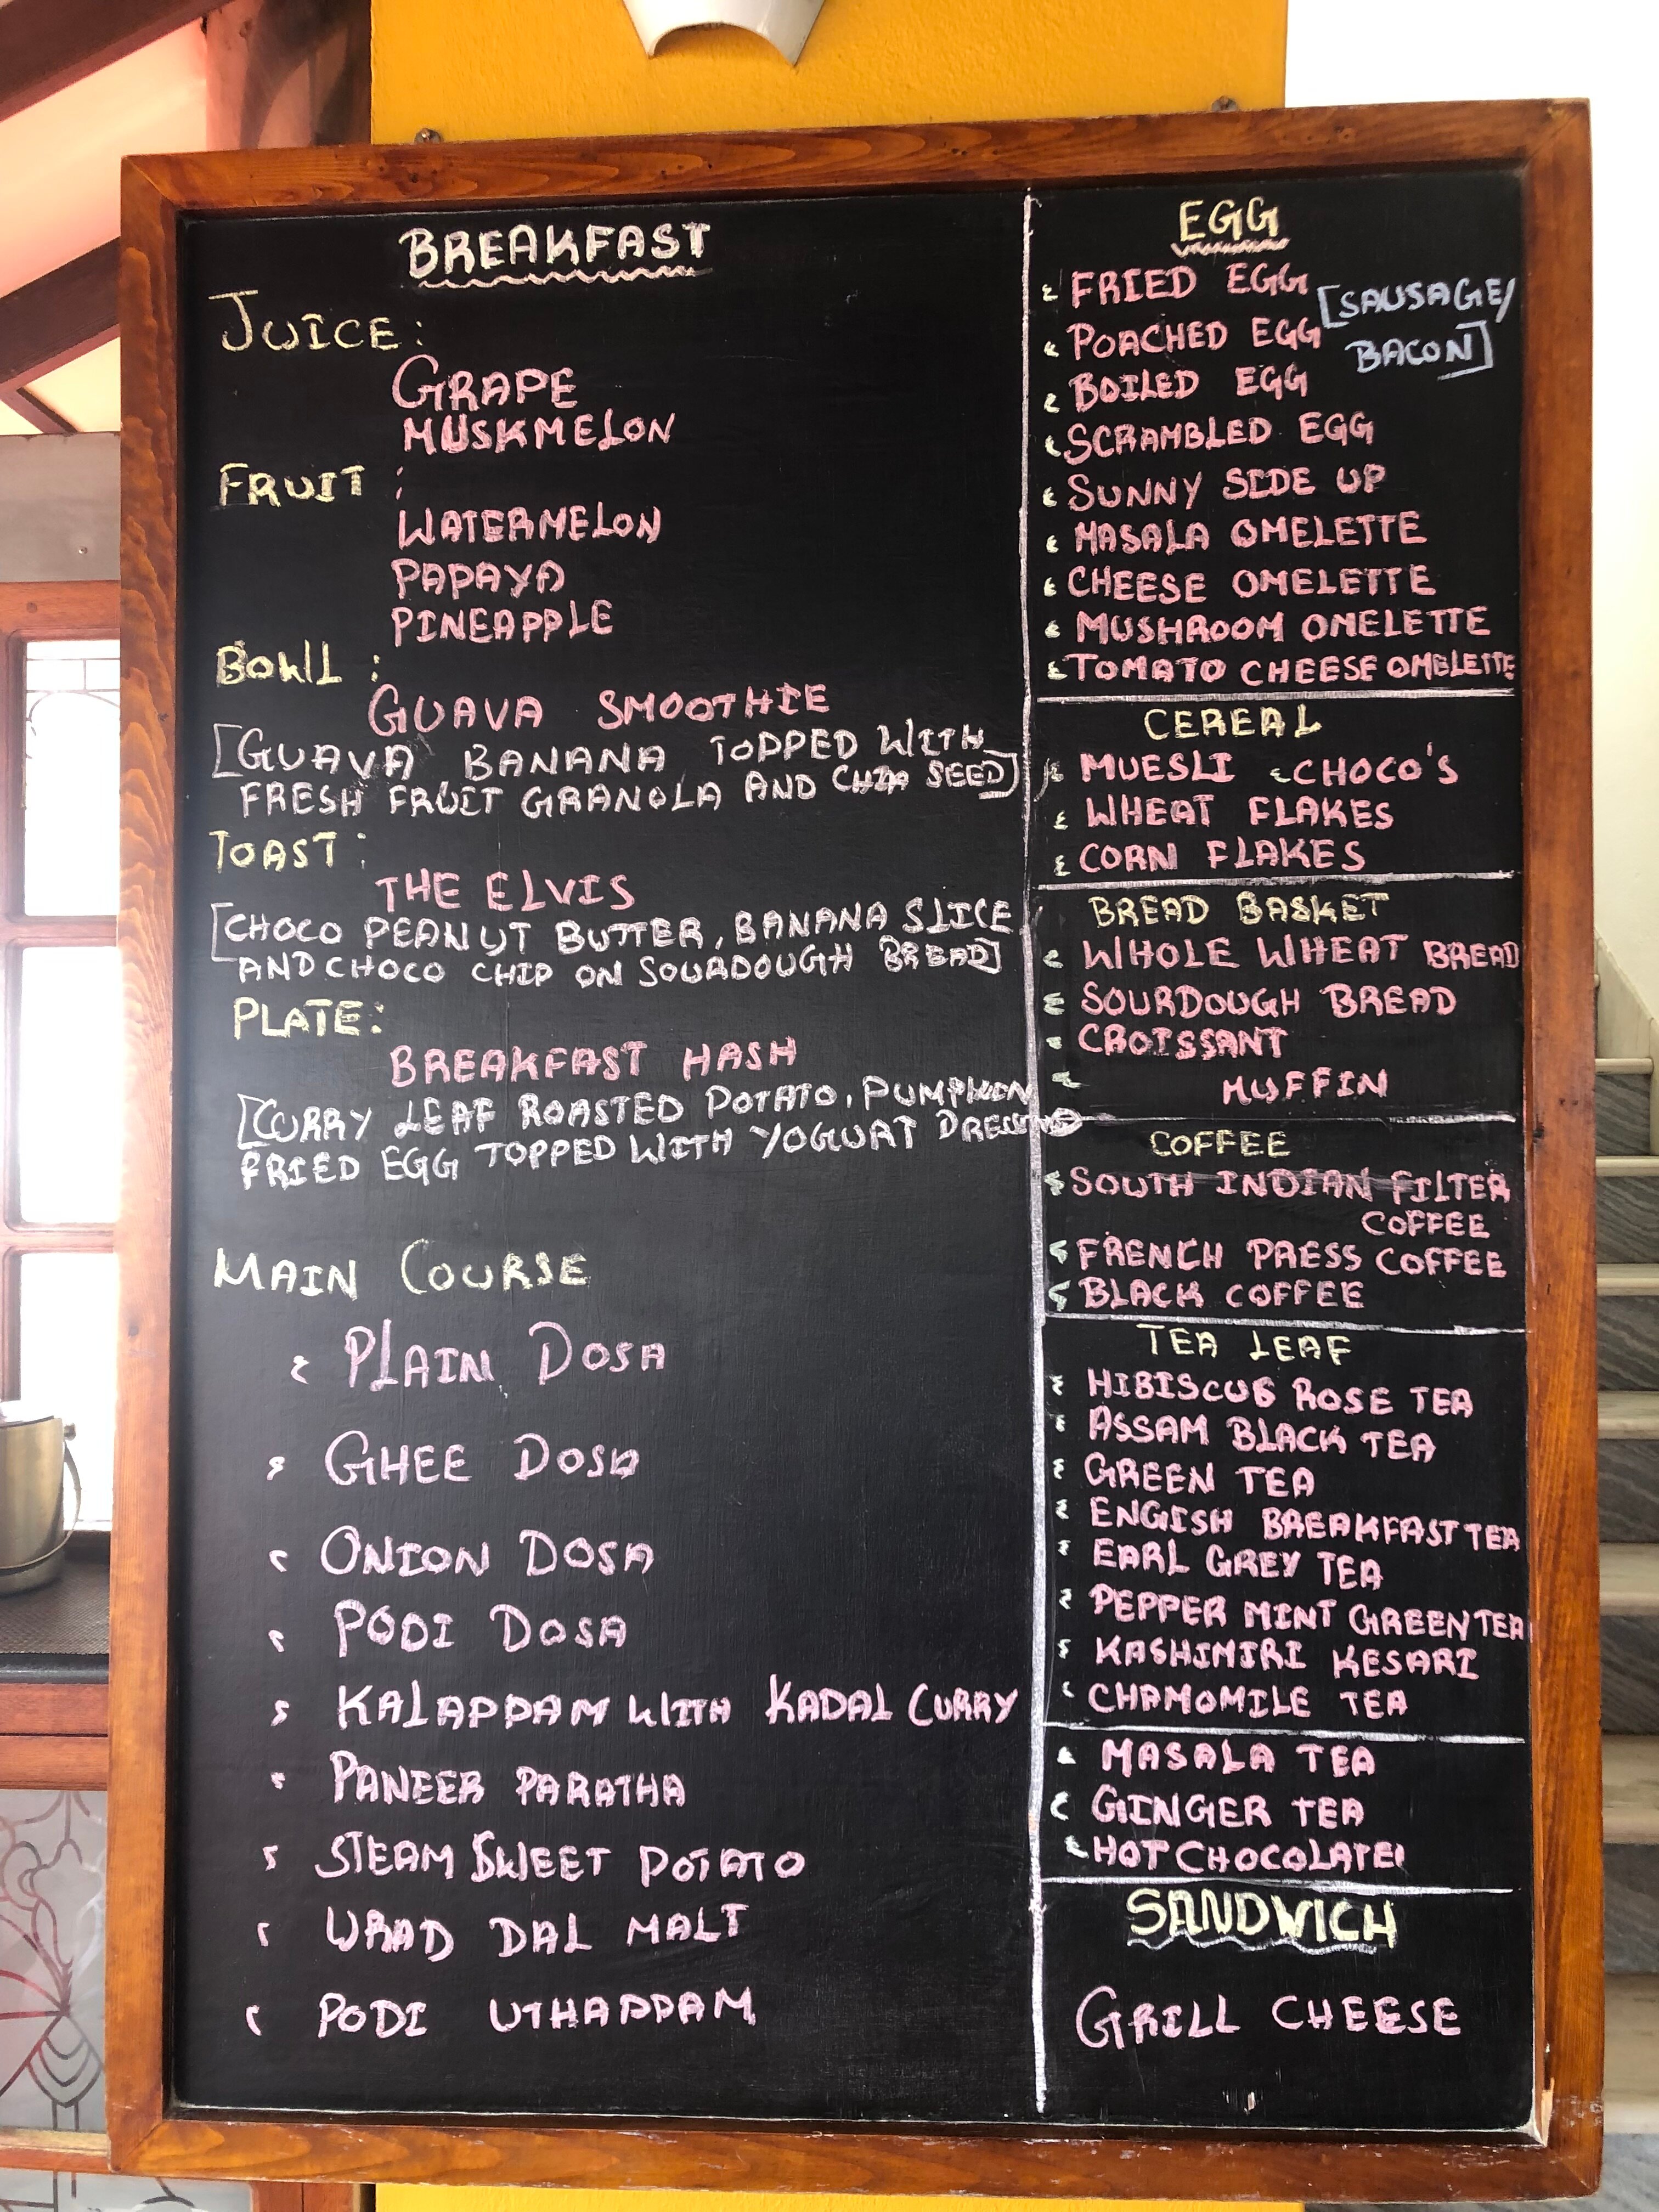 BREAKFAST
JUICE:
GRAPE
MUSKMELON
FRUIT :
WATERMELON
PAPAYA
PINEAPPLE
BOWL :
GUAVA SMOOTHIE
[GUAVA BANANA TOPPED WITH
FRESH FRUIT GRANOLA AND CHIA SEED]
TOAST:
THE ELVIS
[CHOCO PEANUT BUTTER, BANANA SLICE
AND CHOCO CHIP ON SOURDOUGH BREAD]
PLATE:
BREAKFAST HASH
[CURRY LEAF ROASTED POTATO, PUMPKIN
FRIED EGG TOPPED WITH YOGURT DRESSING]
MAIN COURSE
PLAIN DOSA
GHEE DOSA
ONION DOSA
PODI DOSA
KALAPPAM WITH KADAL CURRY
PANEER PARATHA
STEAM SWEET POTATO
URAD DAL MALT
PODI UTHAPPAM
EGG
FRIED EGG [SAUSAGE/
POACHED EGG BACON]
BOILED EGG
SCRAMBLED EGG
SUNNY SIDE UP
MASALA OMELETTE
CHEESE OMELETTE
MUSHROOM OMELETTE
TOMATO CHEESE OMELETTE
CEREAL
MUESLI CHOCO'S
WHEAT FLAKES
CORN FLAKES
BREAD BASKET
WHOLE WHEAT BREAD
SOURDOUGH BREAD
CROISSANT
MUFFIN
COFFEE
SOUTH INDIAN FILTER
COFFEE
FRENCH PRESS COFFEE
BLACK COFFEE
TEA LEAF
HIBISCUS ROSE TEA
ASSAM BLACK TEA
GREEN TEA
ENGISH BREAKFAST TEA
EARL GREY TEA
PEPPER MINT GREEN TEA
KASHIMIRI KESARI
CHAMOMILE TEA
MASALA TEA
GINGER TEA
HOT CHOCOLATE
SANDWICH
GRILL CHEESE